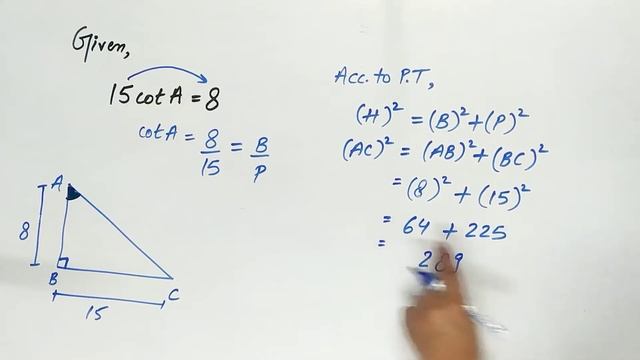 Given,
15 cot A = 8
cot A = 8/15 = B/P
A
8
B
C
15
Acc. to P.T,
(H)² = (B)² + (P)²
(AC)² = (AB)² + (BC)²
= (8)² + (15)²
= 64 + 225
= 289